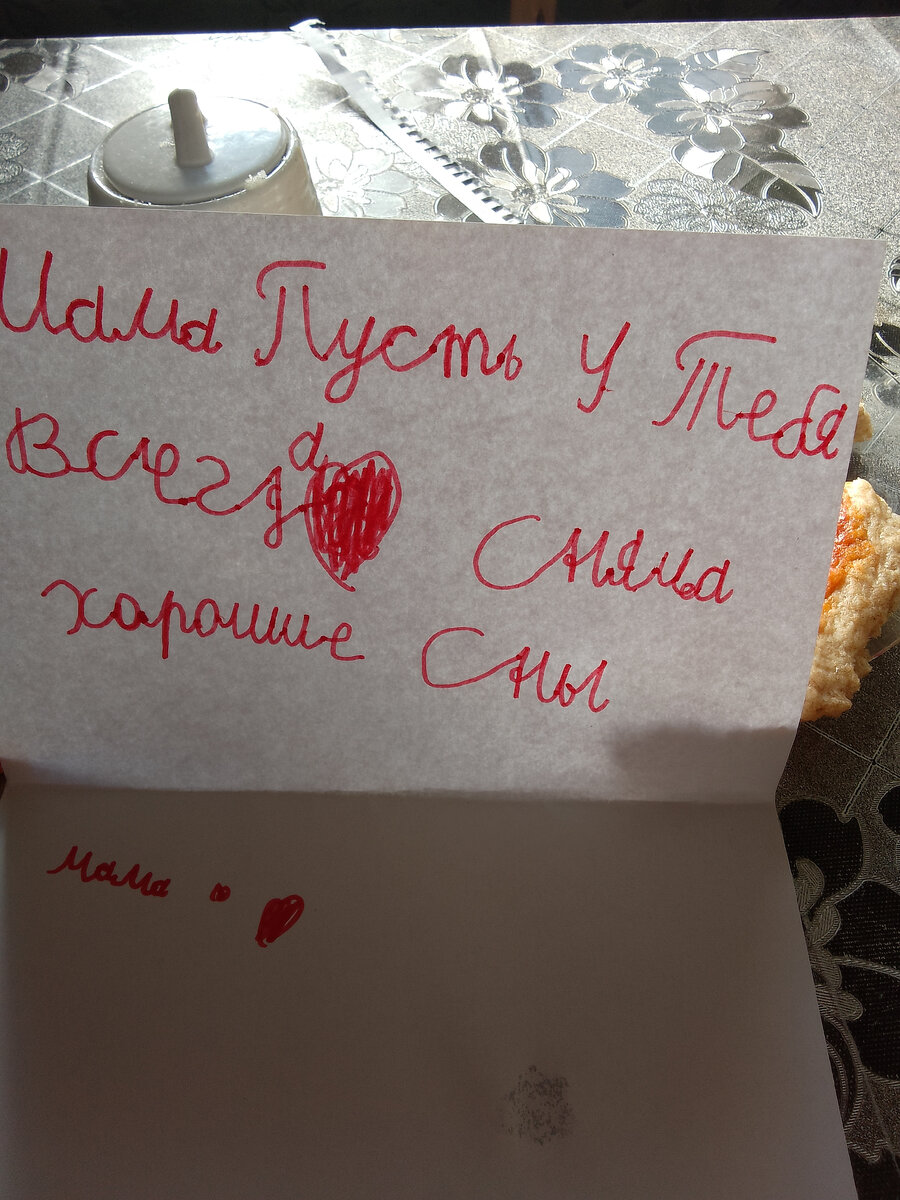 Мама Пусть у Тебя
Всегда Сняма
харошие Сны
мама